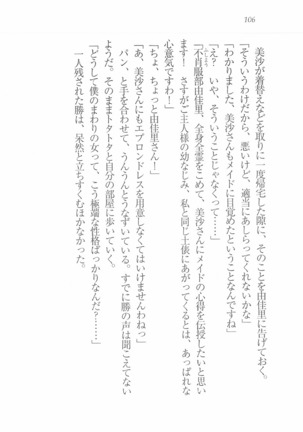 106
美沙が着替えなどを取りに一度帰宅した隙に、そのことを由佳里に告げておく。
「そういうわけだけど、悪いけど、適当にあしらってくれないかな」
「わかりました、美沙さんもメイドに目覚めたということなんですね」
「え？　いや、そういうことじゃなくって……」
「不肖服部由佳里、全身全霊をこめて、美沙さんにメイドの心得を伝授したいと思い
ます！　さすがご主人様の幼なじみ、私と同じ土俵にあがってくるとは、あっぱれな
心意気ですわ！」
「ちょ、ちょっと由佳里さん！」
「あ、美沙さんにもエプロンドレスを用意しなくてはいけませんわねっ」
パン、と手を合わせて、うんうんとうなずいている。すでに勝の声は聞こえてない
らしく、そのままトタトタと自分の部屋に歩いていく。
「どうして僕のまわりの女って、こう極端な性格ばっかりなんだ？……」
一人残された勝は、呆然と立ちすくむほかなかった。